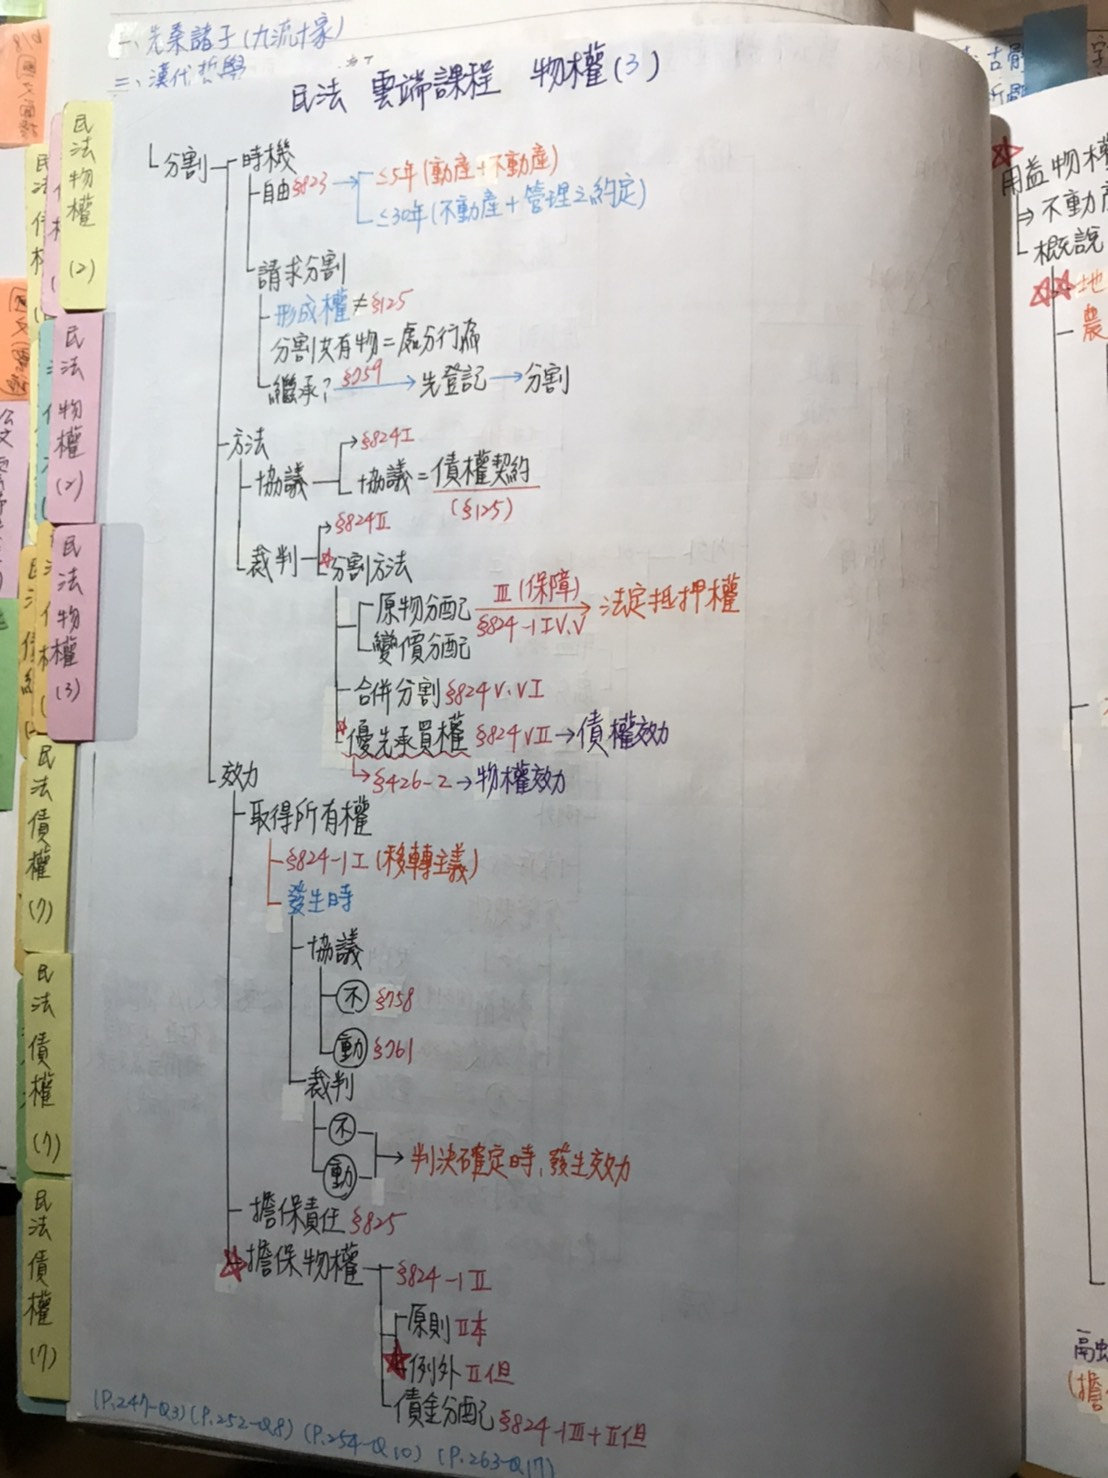 一、先秦諸子(九流十家)
二、漢代哲學
民法 雲端課程 物權(3)
分割
時機
自由 §823 → ≤5年(動產+不動產)
≤30年(不動產+管理之約定)
請求分割
形成權≠§125
分割共有物=處分行為
繼承? §759 → 先登記 → 分割
方法
→ §824 I
協議
協議=債權契約
(§125)
→ §824 II
裁判
☆分割方法
原物分配 III(保障) → 法定抵押權
§824-1 IV、V
變價分配
合併分割 §824 V、VI
☆優先承買權 §824 VII → 債權效力
→ §426-2 → 物權效力
效力
取得所有權
§824-1 I (移轉主義)
發生時
協議
不 §758
動 §761
裁判
不
動
→ 判決確定時,發生效力
擔保責任 §825
☆擔保物權
§824-1 II
原則 II本
☆例外 II但
債金分配 §824-1 III+II但
(P.247-Q3) (P.252-Q8) (P.254-Q10) (P.263-Q17)
民法物權(2)
民法物權(2)
民法物權(3)
民法債權(7)
民法債權(7)
民法債權(7)
☆用益物權
⇒不動產
概說
☆☆地
農